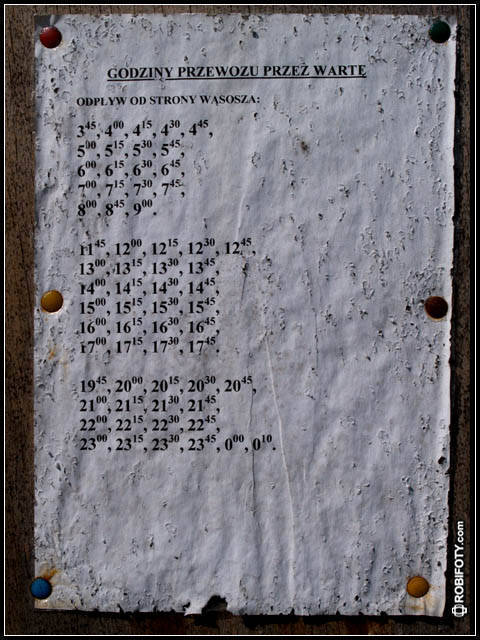 GODZINY PRZEWOZU PRZEZ WARTĘ
ODPŁYW OD STRONY WĄSOSZA:
3⁴⁵, 4⁰⁰, 4¹⁵, 4³⁰, 4⁴⁵,
5⁰⁰, 5¹⁵, 5³⁰, 5⁴⁵,
6⁰⁰, 6¹⁵, 6³⁰, 6⁴⁵,
7⁰⁰, 7¹⁵, 7³⁰, 7⁴⁵,
8⁰⁰, 8⁴⁵, 9⁰⁰.
11⁴⁵, 12⁰⁰, 12¹⁵, 12³⁰, 12⁴⁵,
13⁰⁰, 13¹⁵, 13³⁰, 13⁴⁵,
14⁰⁰, 14¹⁵, 14³⁰, 14⁴⁵,
15⁰⁰, 15¹⁵, 15³⁰, 15⁴⁵,
16⁰⁰, 16¹⁵, 16³⁰, 16⁴⁵,
17⁰⁰, 17¹⁵, 17³⁰, 17⁴⁵.
19⁴⁵, 20⁰⁰, 20¹⁵, 20³⁰, 20⁴⁵,
21⁰⁰, 21¹⁵, 21³⁰, 21⁴⁵,
22⁰⁰, 22¹⁵, 22³⁰, 22⁴⁵,
23⁰⁰, 23¹⁵, 23³⁰, 23⁴⁵, 0⁰⁰, 0¹⁰.
ROBIFOTY.com